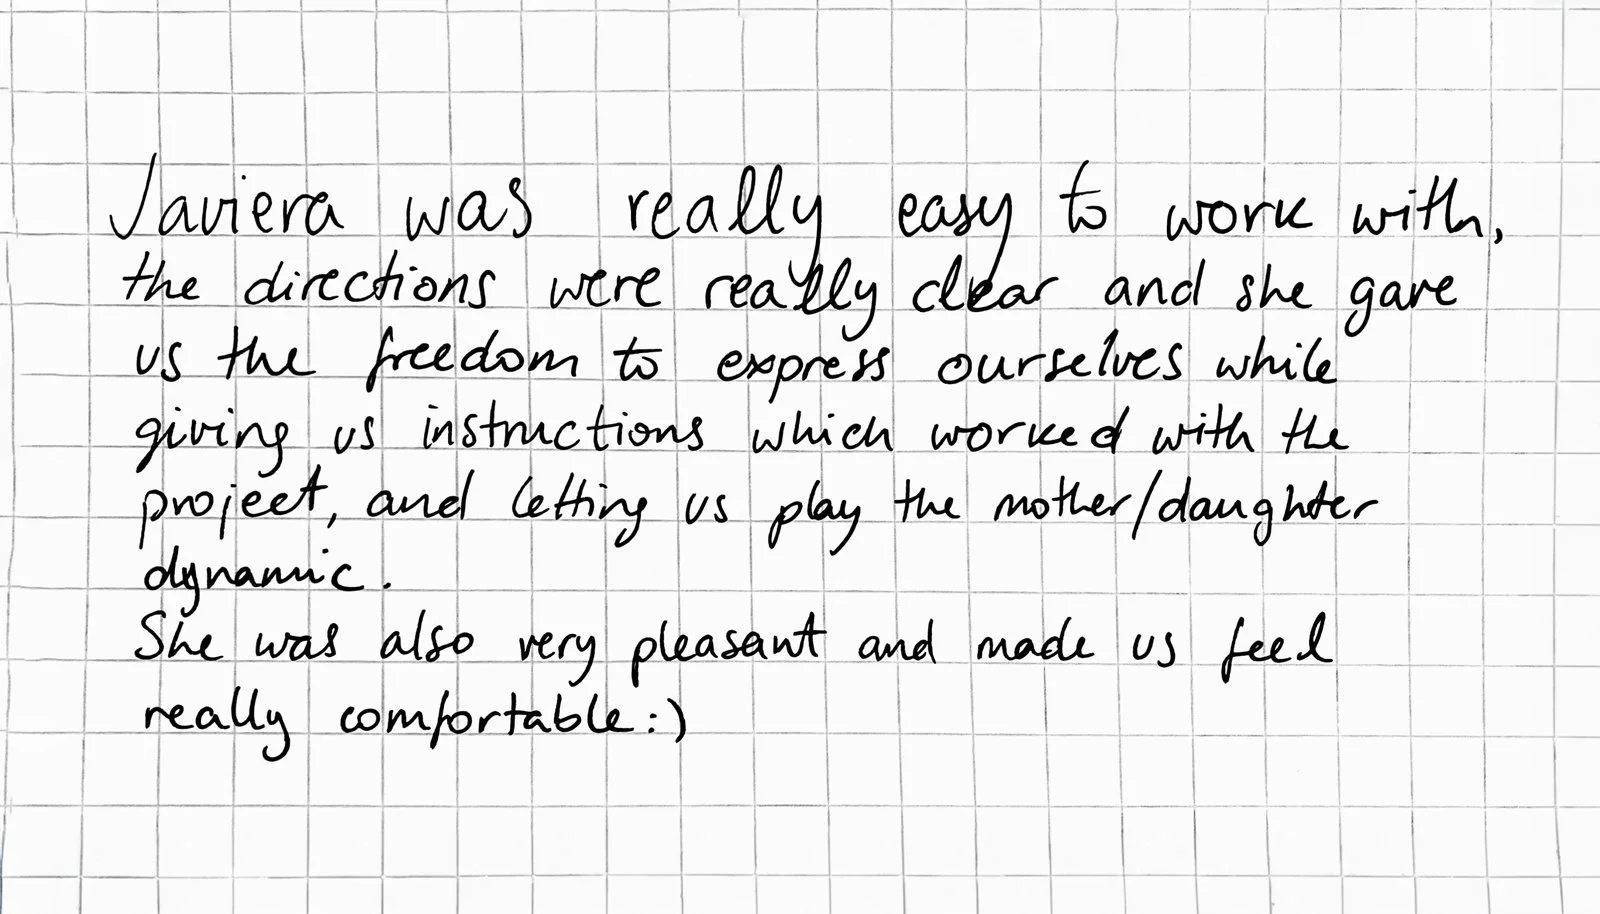 Javiera was really easy to work with,
the directions were really clear and she gave
us the freedom to express ourselves while
giving us instructions which worked with the
project, and letting us play the mother/daughter
dynamic.
She was also very pleasant and made us feel
really comfortable :)